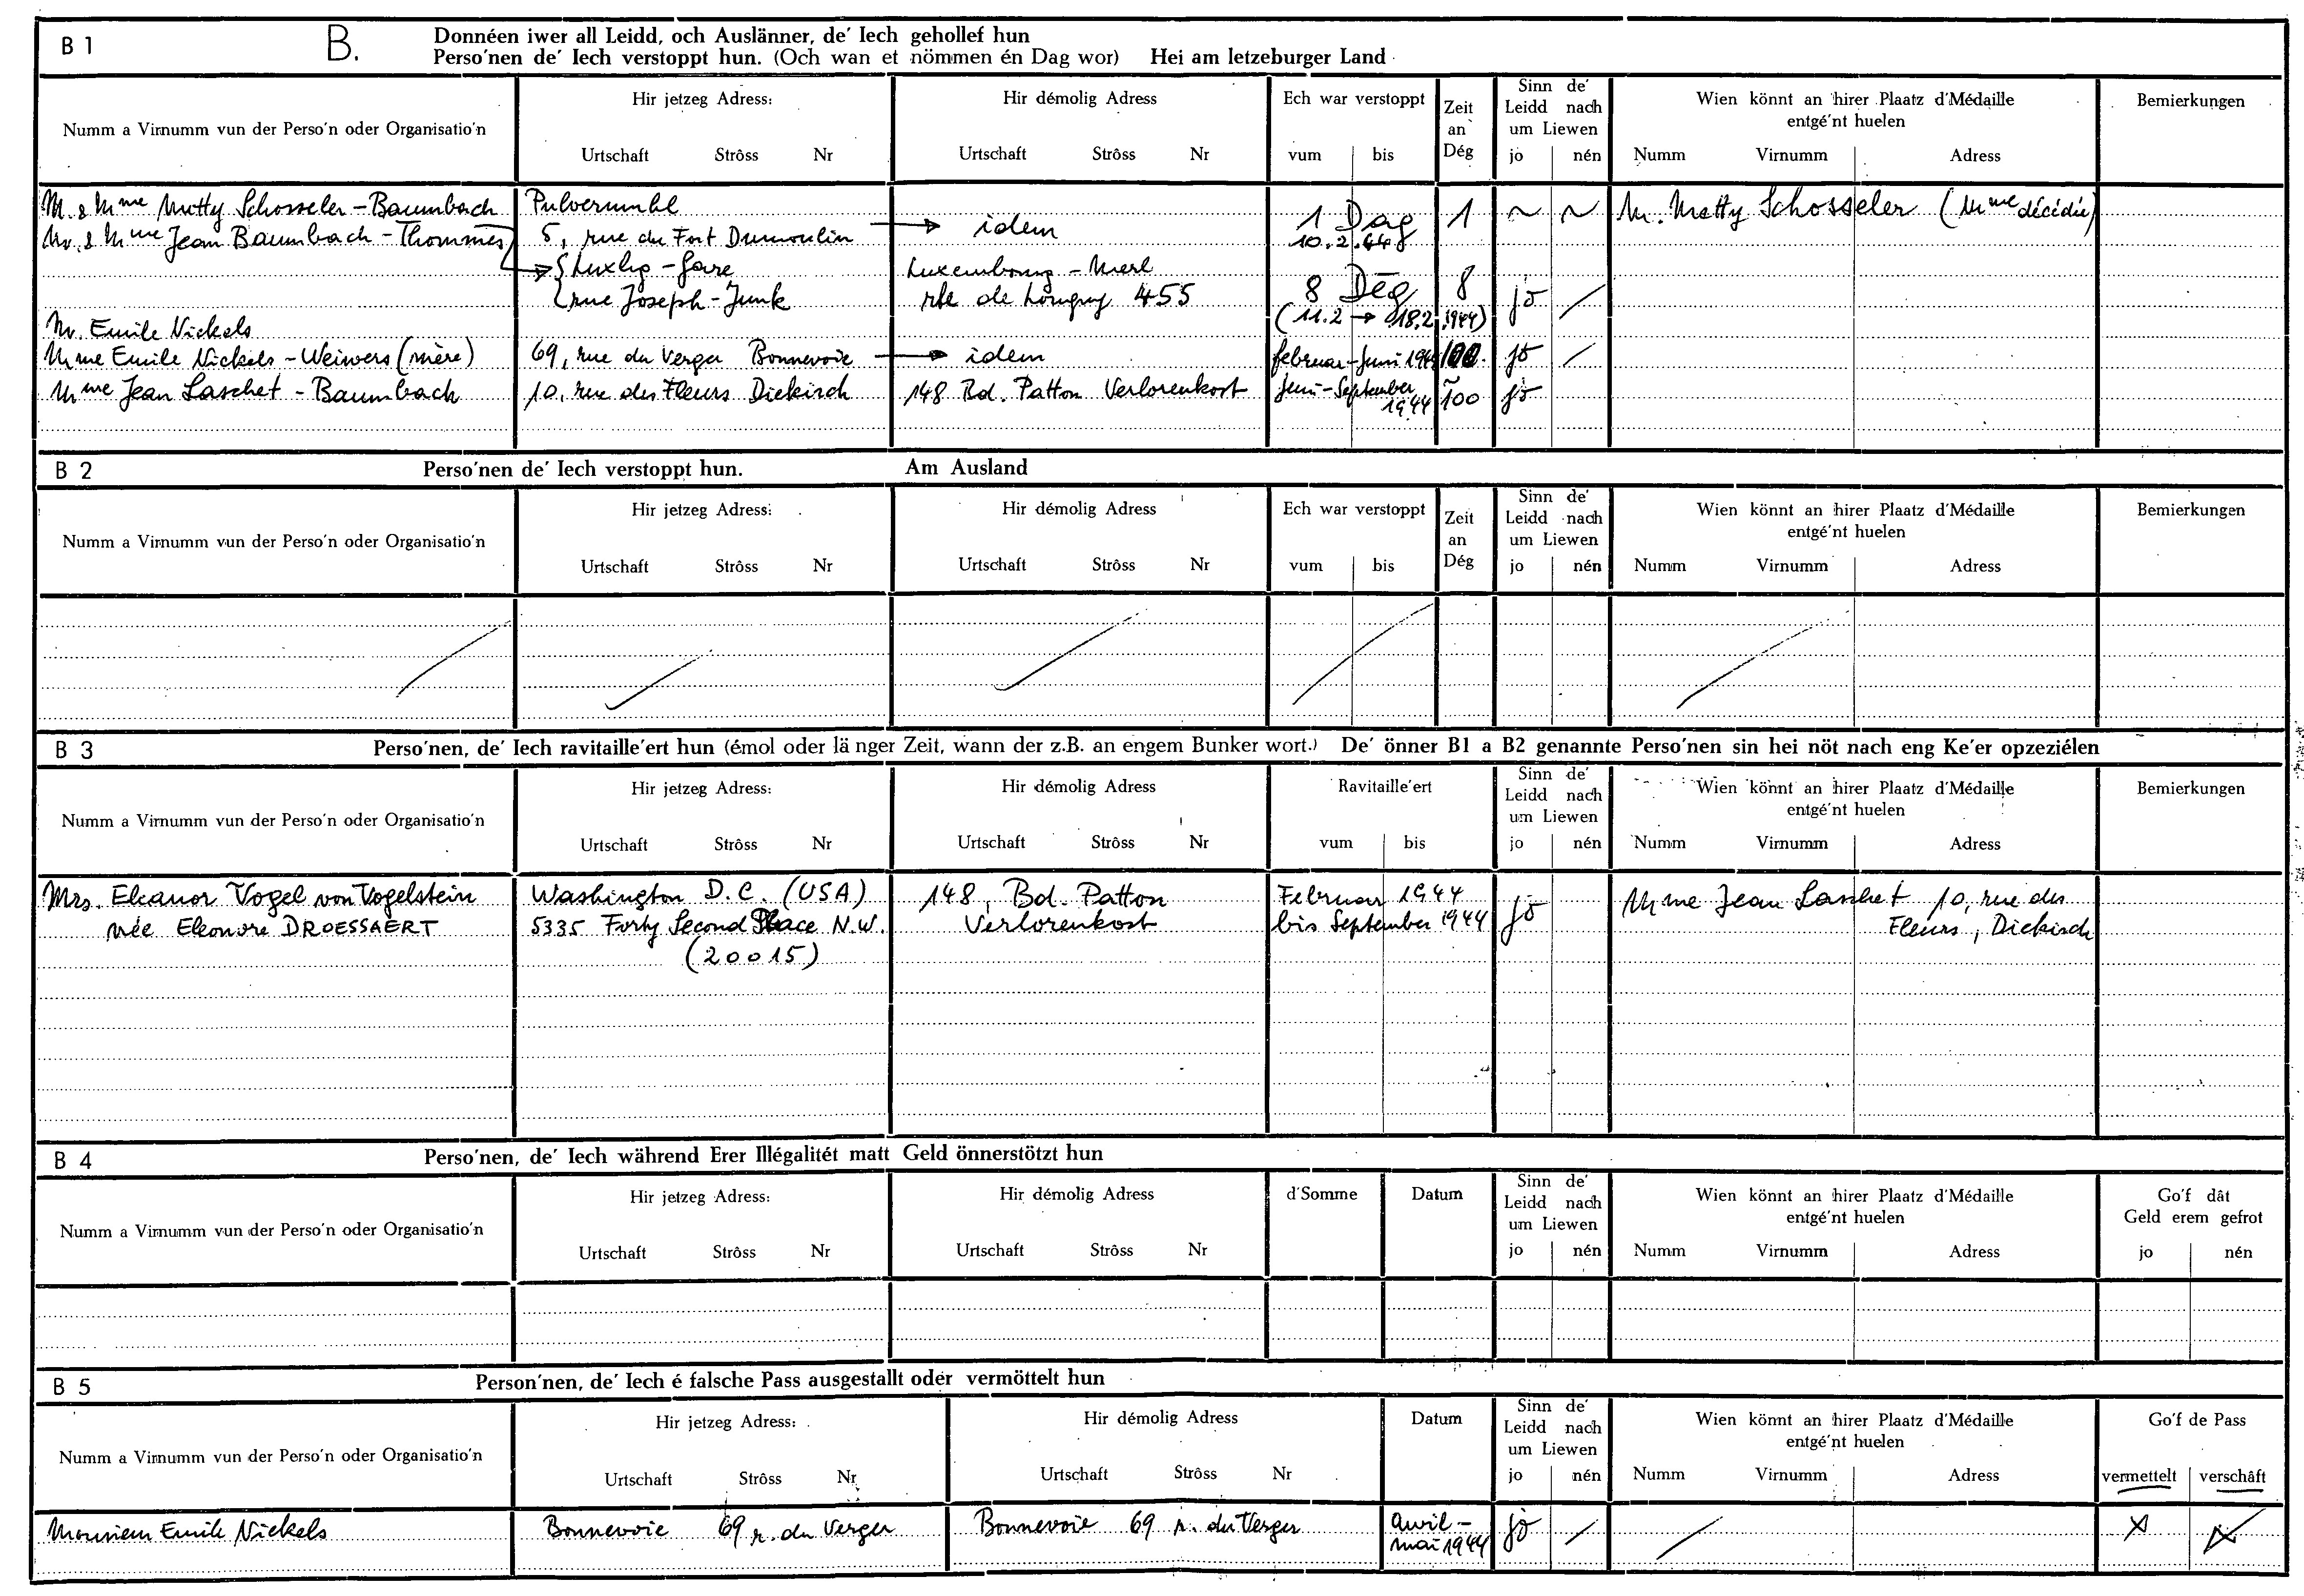 B 1 B. Donnéen iwer all Leidd, och Auslänner, de' Iech gehollef hun
Perso'nen de' Iech verstoppt hun. (Och wan et nömmen én Dag wor) Hei am letzeburger Land
Numm a Virnumm vun der Perso'n oder Organisatio'n
Hir jetzeg Adress:
Urtschaft Strôss Nr
Hir démolig Adress
Urtschaft Strôss Nr
Ech war verstoppt
vum bis
Zeit
an
Dég
Sinn de'
Leidd nach
um Liewen
jo nén
Wien könnt an hirer Plaatz d'Médaille
entgé'nt huelen
Numm Virnumm Adress
Bemierkungen
M. & Mme Metty Schosseler-Baumbach Pulvermuhl 1 Dag 1 ~ ~ M. Metty Schosseler (Mme décédée)
Mr. & Mme Jean Baumbach-Thommes 5, rue du Fort Dumoulin → idem 10.2.44
Luxbg-Gare Luxembourg-Merl
rue Joseph-Junk rte de Longwy 455 8 Deg 8 jo /
(11.2 → 18.2.1944)
Mr. Emile Nickels
Mme Emile Nickels-Weiwers (mère) 69, rue du Verger Bonnevoie → idem februar-Juni 1944 100 jo /
Mme Jean Laschet-Baumbach 10, rue des Fleurs Diekirch 148 Bd. Patton Verlorenkost Juni-September 1944 ~100 jo
B 2 Perso'nen de' Iech verstoppt hun. Am Ausland
Numm a Virnumm vun der Perso'n oder Organisatio'n
Hir jetzeg Adress:
Urtschaft Strôss Nr
Hir démolig Adress
Urtschaft Strôss Nr
Ech war verstoppt
vum bis
Zeit
an
Dég
Sinn de'
Leidd nach
um Liewen
jo nén
Wien könnt an hirer Plaatz d'Médaille
entgé'nt huelen
Numm Virnumm Adress
Bemierkungen
B 3 Perso'nen, de' Iech ravitaille'ert hun (émol oder länger Zeit, wann der z.B. an engem Bunker wort.) De' önner B1 a B2 genannte Perso'nen sin hei nöt nach eng Ke'er opzeziélen
Numm a Virnumm vun der Perso'n oder Organisatio'n
Hir jetzeg Adress:
Urtschaft Strôss Nr
Hir démolig Adress
Urtschaft Strôss Nr
Ravitaille'ert
vum bis
Sinn de'
Leidd nach
um Liewen
jo nén
Wien könnt an hirer Plaatz d'Médaille
entgé'nt huelen
Numm Virnumm Adress
Bemierkungen
Mrs. Eleanor Vogel von Vogelstein Washington D.C. (USA) 148, Bd. Patton Februar 1944 jo Mme Jean Laschet 10, rue des
née Eleonore DROESSAERT 5335 Forty Second Place N.W. Verlorenkost bis September 1944 Fleurs, Diekirch
(20015)
B 4 Perso'nen, de' Iech während Erer Illégalitét matt Geld önnerstötzt hun
Numm a Virnumm vun der Perso'n oder Organisatio'n
Hir jetzeg Adress:
Urtschaft Strôss Nr
Hir démolig Adress
Urtschaft Strôss Nr
d'Somme
Datum
Sinn de'
Leidd nach
um Liewen
jo nén
Wien könnt an hirer Plaatz d'Médaille
entgé'nt huelen
Numm Virnumm Adress
Go'f dât
Geld erem gefrot
jo nén
B 5 Person'nen, de' Iech é falsche Pass ausgestallt oder vermöttelt hun
Numm a Virnumm vun der Perso'n oder Organisatio'n
Hir jetzeg Adress:
Urtschaft Strôss Nr
Hir démolig Adress
Urtschaft Strôss Nr
Datum
Sinn de'
Leidd nach
um Liewen
jo nén
Wien könnt an hirer Plaatz d'Médaille
entgé'nt huelen
Numm Virnumm Adress
Go'f de Pass
vermettelt verschâft
Monsieur Emile Nickels Bonnevoie 69 r. du Verger Bonnevoie 69 r. du Verger avril-
mai 1944 jo / / x x